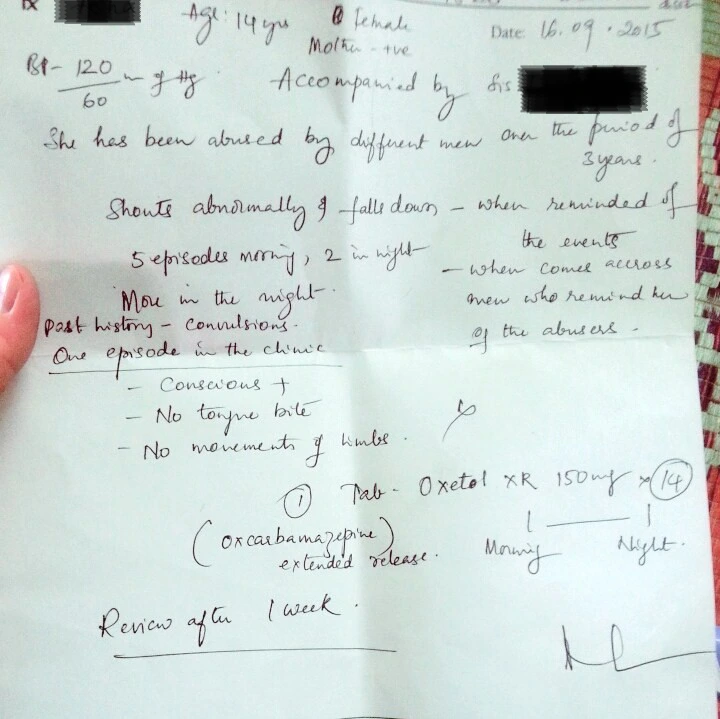 Age: 14 yrs Female Date: 16.09.2015
Mother -+ve
BP- 120/60 mm of Hg Accompanied by Sis
She has been abused by different men over the period of
3 years.
Shouts abnormally & falls down - when reminded of
the events
5 episodes morning, 2 in night
- when comes accross
More in the night.
men who remind her
of the abusers.
Past history - convulsions.
One episode in the clinic
- Conscious +
- No tongue bite
- No movements of limbs.
① Tab - Oxetol XR 150mg x 14
1 — 1
(oxcarbamazepine)
extended release.
Morning Night.
Review after 1 week.